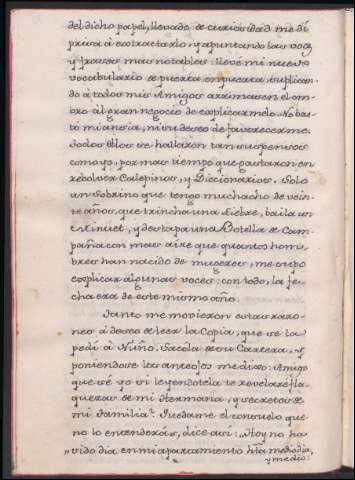 del dicho papel, llevado de curiosidad me di
prisa à extractarlo, y apuntando las voces,
y frases mas notables: llevè mi nuevo
vocabulario de puerta en puerta, suplican-
do à todos mis Amigos arrimasen el om-
bro al gran negocio de explicarmelo. No bas-
tò mi ansia, ni su deseo de favorecerme.
Todos ellos se hallaron tan suspensos
como yo, por mas tiempo que gastaron en
rebolver Calepinos, y Diccionarios. Solo
un Sobrino que tengo muchacho de vein-
te años, que trincha una Liebre, baila un
Minuet, y destapa una Botella de Cam-
paña con mas aire que quantos hom-
bres han nacido de mugeres, me supo
explicar algunas voces: con todo, la fe-
cha era de este mismo año.
Tanto me movieron estas razo-
nes à deseo de leer la Copia, que se la
pedì à Nuño. Sacola de su Cartera, y
poniendose los anteojos me dixo: Amigo
que sè yo si leyendotela te revelarè fla-
quezas de mi Hermana, y secretos de
mi familia? Quedame el consuelo que
no lo entenderàs, dice asì: "Hoy no ha
"sido dia en mi apartamento hta medio dia,
y medio: